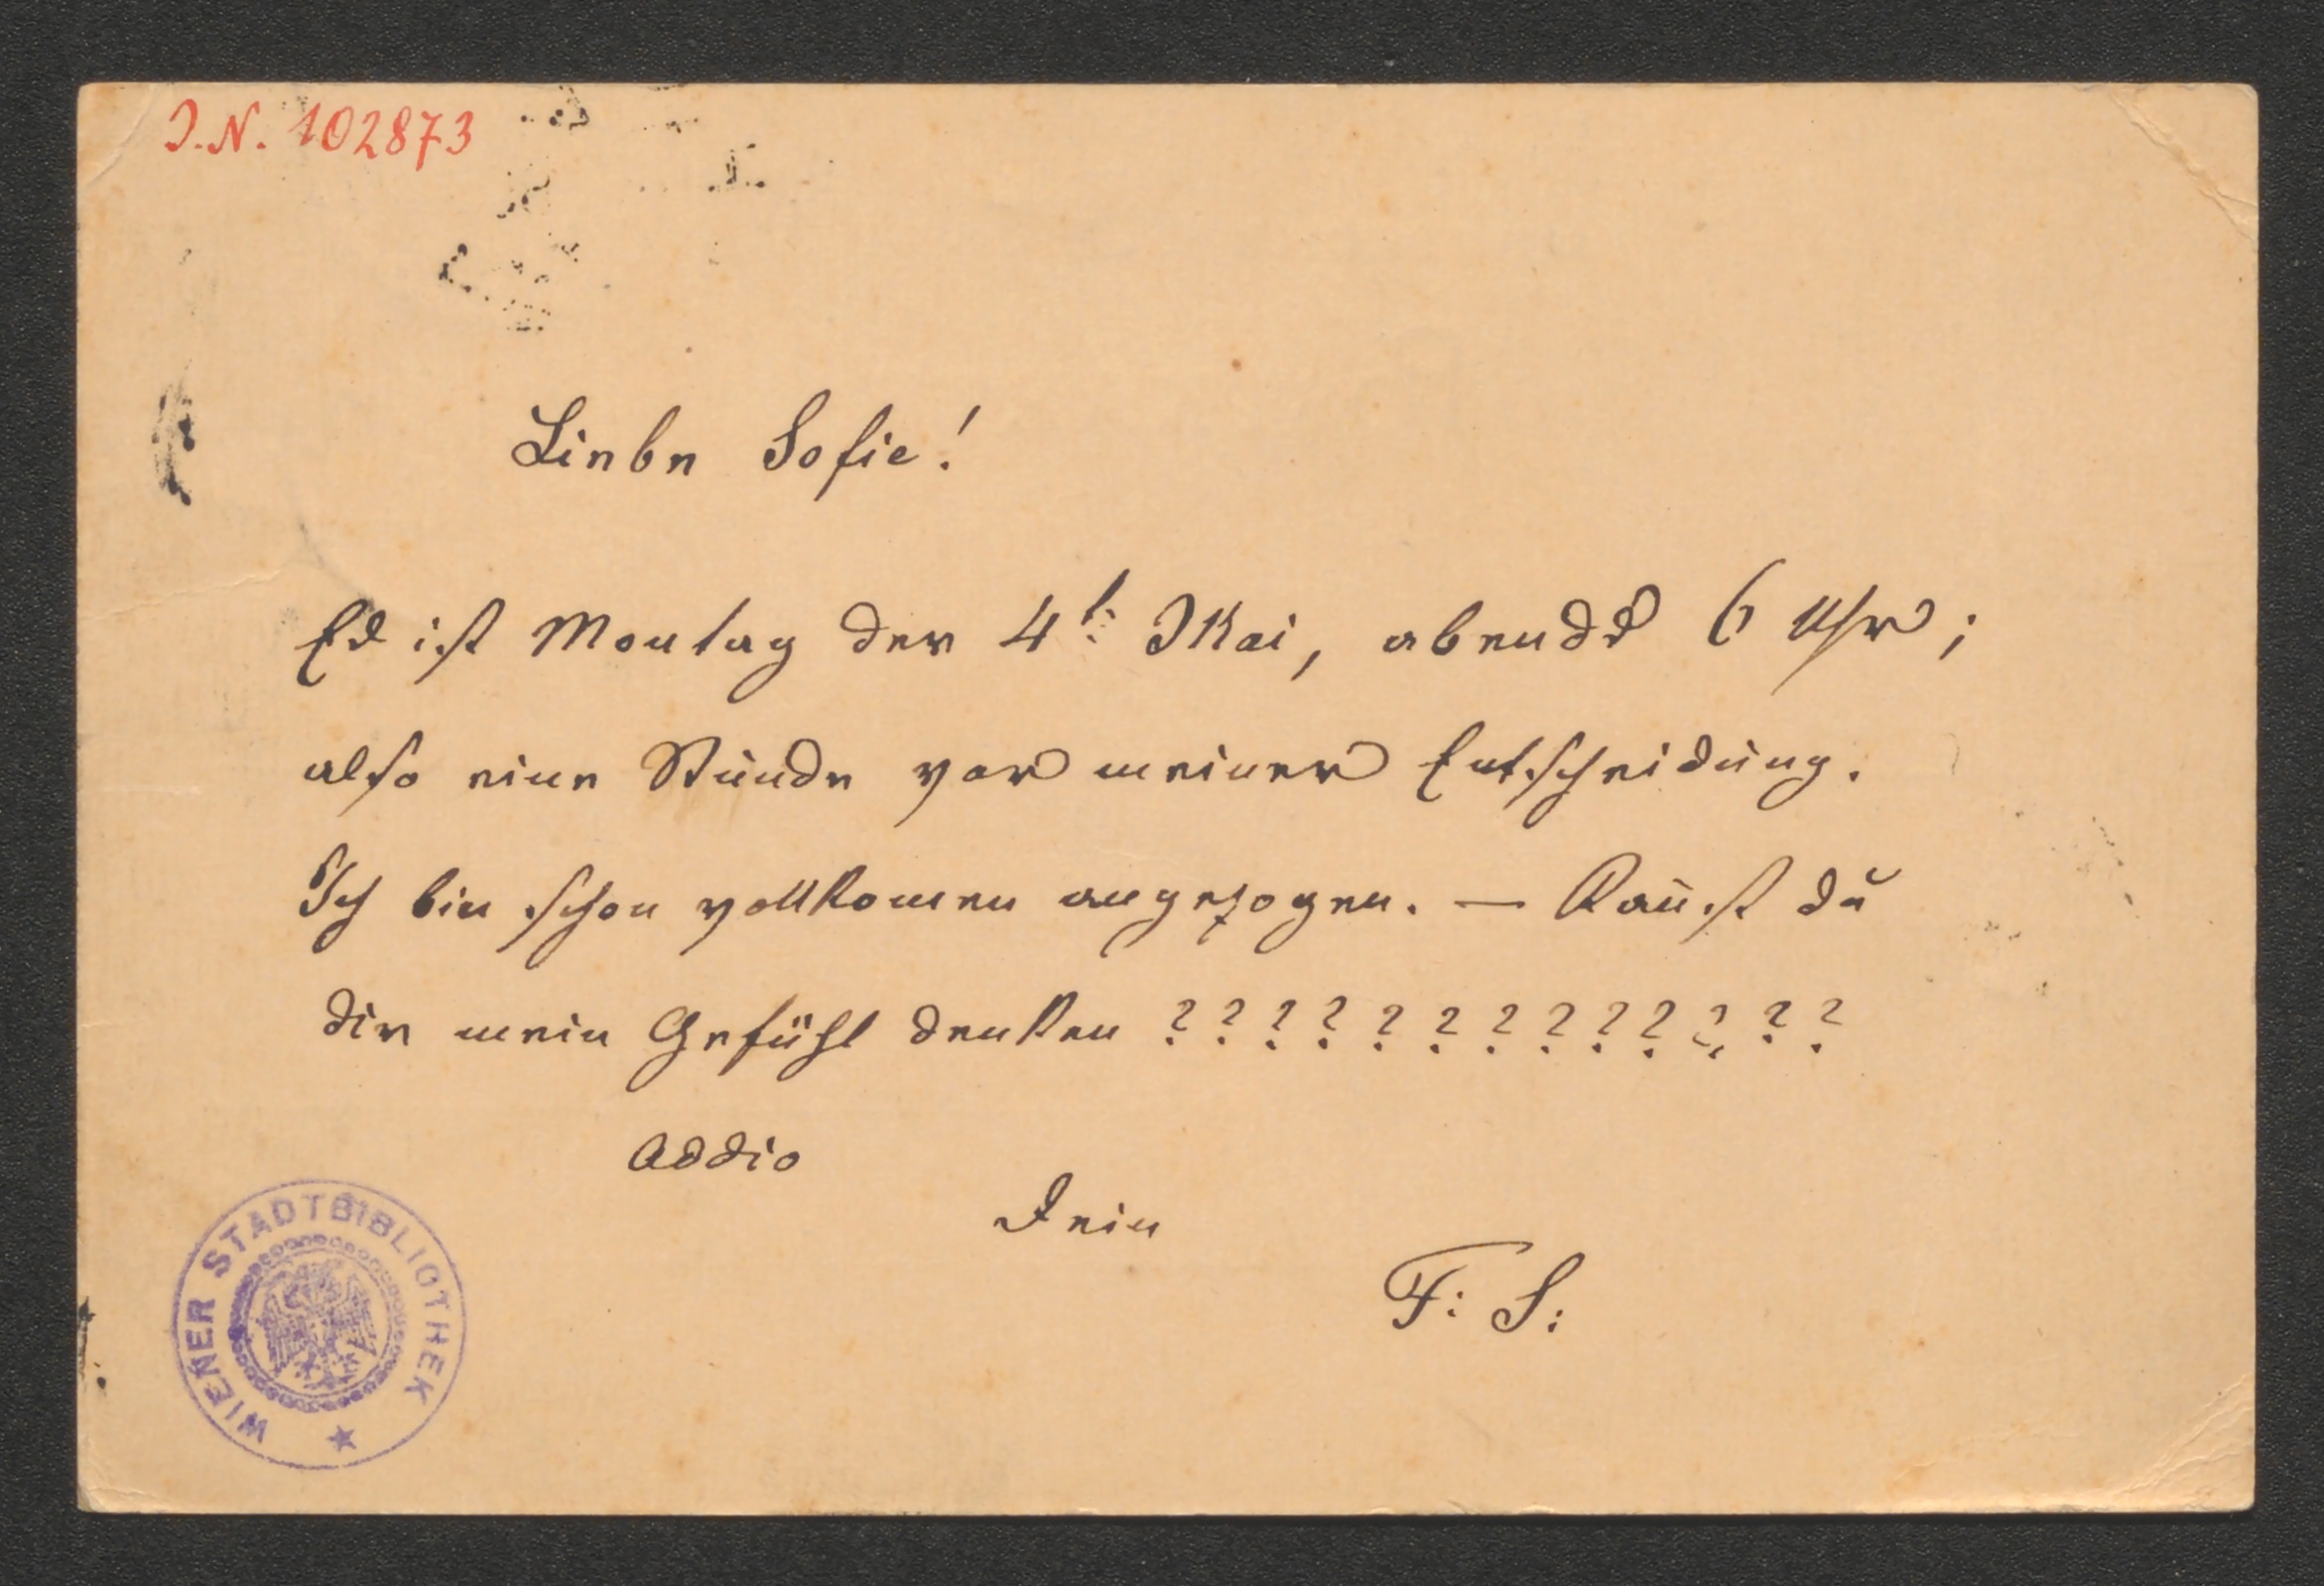 I.N. 102873
Liebe Sofie!
Es ist Montag der 4t: Mai, abends 6 Uhr;
also eine Stunde vor meiner Entscheidung.
Ich bin schon vollkom̅en angezogen. — Kan̅st du
dir mein Gefühl denken ? ? ? ? ? ? ? ? ? ? ? ? ?
Addio
Dein
F: S:
WIENER STADTBIBLIOTHEK